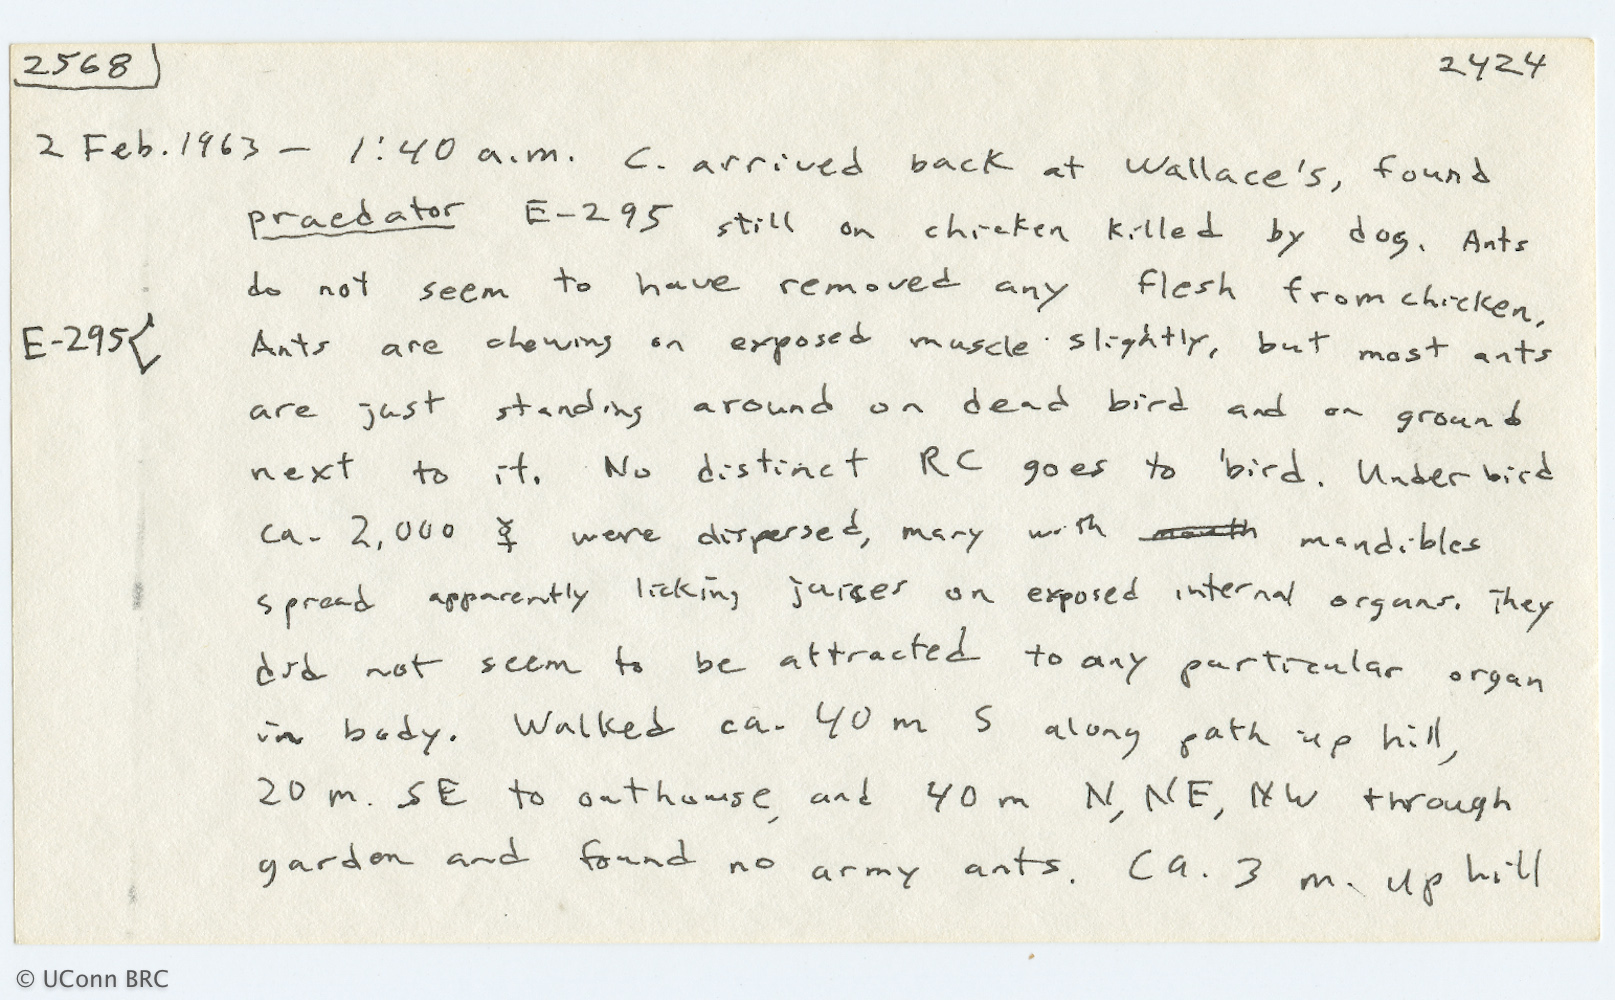 2568 2424
2 Feb. 1963 – 1:40 a.m. C. arrived back at Wallace's, found
praedator E-295 still on chicken killed by dog. Ants
do not seem to have removed any flesh from chicken.
E-295{ Ants are chewing on exposed muscle slightly, but most ants
are just standing around on dead bird and on ground
next to it. No distinct RC goes to bird. Under bird
ca. 2,000 ☿ were dispersed, many with mouth mandibles
spread apparently licking juices on exposed internal organs. They
did not seem to be attracted to any particular organ
in body. Walked ca. 40 m S along path up hill,
20 m. SE to outhouse, and 40 m N, NE, NW through
garden and found no army ants. Ca. 3 m. up hill
© UConn BRC